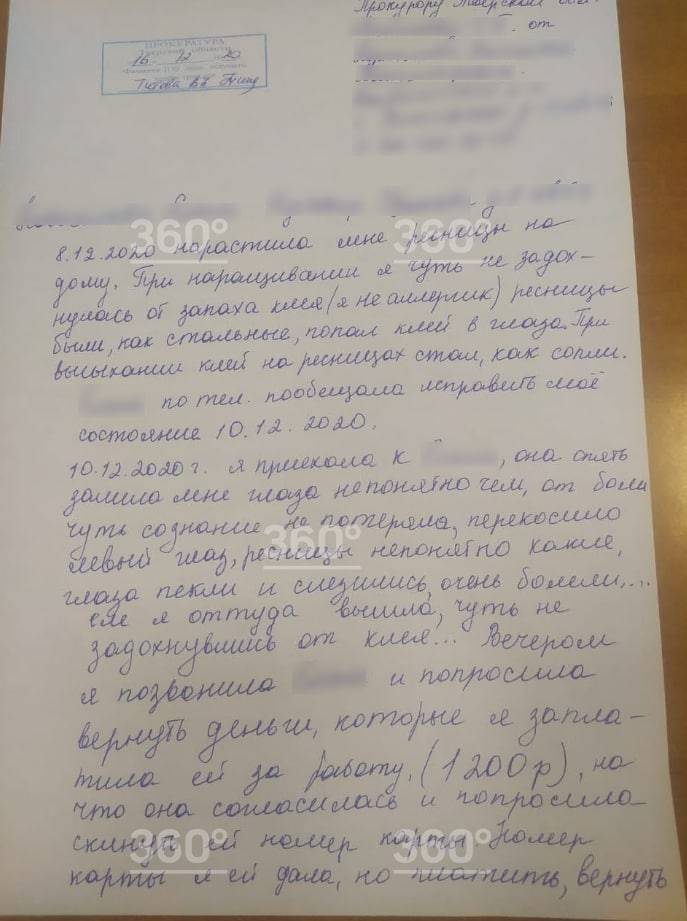 Прокурору Тверской обл.
от
ПРОКУРАТУРА
Тверской области
16. 12 2020
8.12.2020 нарастила мне ресницы на
дому. При наращивании я чуть не задох-
нулась от запаха клея (я не аллергик) ресницы
были, как стальные, попал клей в глаза. При
высыхании клей на ресницах стал, как сопли.
по тел. пообещала исправить моё
состояние 10.12.2020.
10.12.2020г. я приехала к , она опять
залила мне глаза непонятно чем, от боли
чуть сознание не потеряла, перекосило
левый глаз, ресницы непонятно какие,
глаза пекли и слезились, очень болели....
еле я оттуда вышла, чуть не
задохнувшись от клея... Вечером
я позвонила и попросила
вернуть деньги, которые я запла-
тила ей за работу, (1200р), на
что она согласилась и попросила
скинуть ей номер карты Номер
карты я ей дала, но платить, вернуть
360°
360°
360°
360°
360°